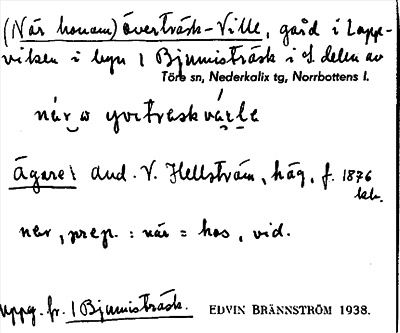 (När honom) Överträsk-Ville, gård i Lapp-
viken i byn 1 Bjumisträsk i S. delen av
Töre sn, Nederkalix tg, Norrbottens l.
når o yvɩtraskvɩ́lːe
Ägare: And. V. Hellström, häg, f. 1876
nær, prep. : när = hos, vid.
Uppg. fr. 1 Bjumisträsk. EDVIN BRÄNNSTRÖM 1938.